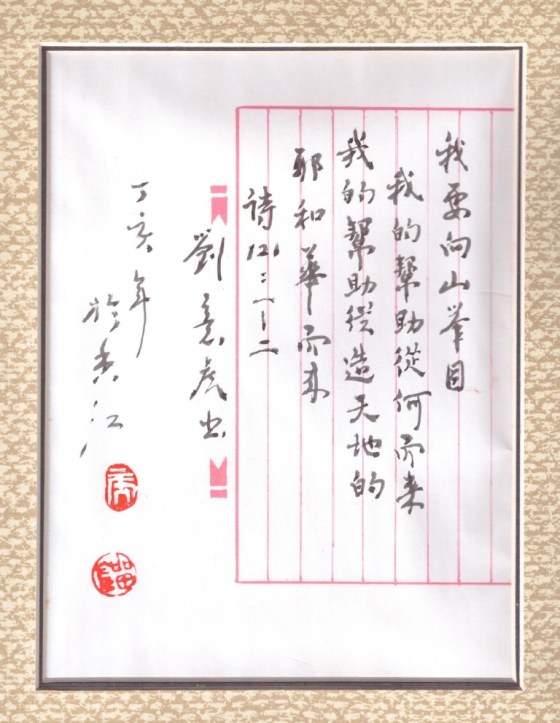 我要向山举目
我的幫助從何而来
我的幫助從造天地的
耶和華而来
詩121:一~二
劉意
丁亥年
於香江